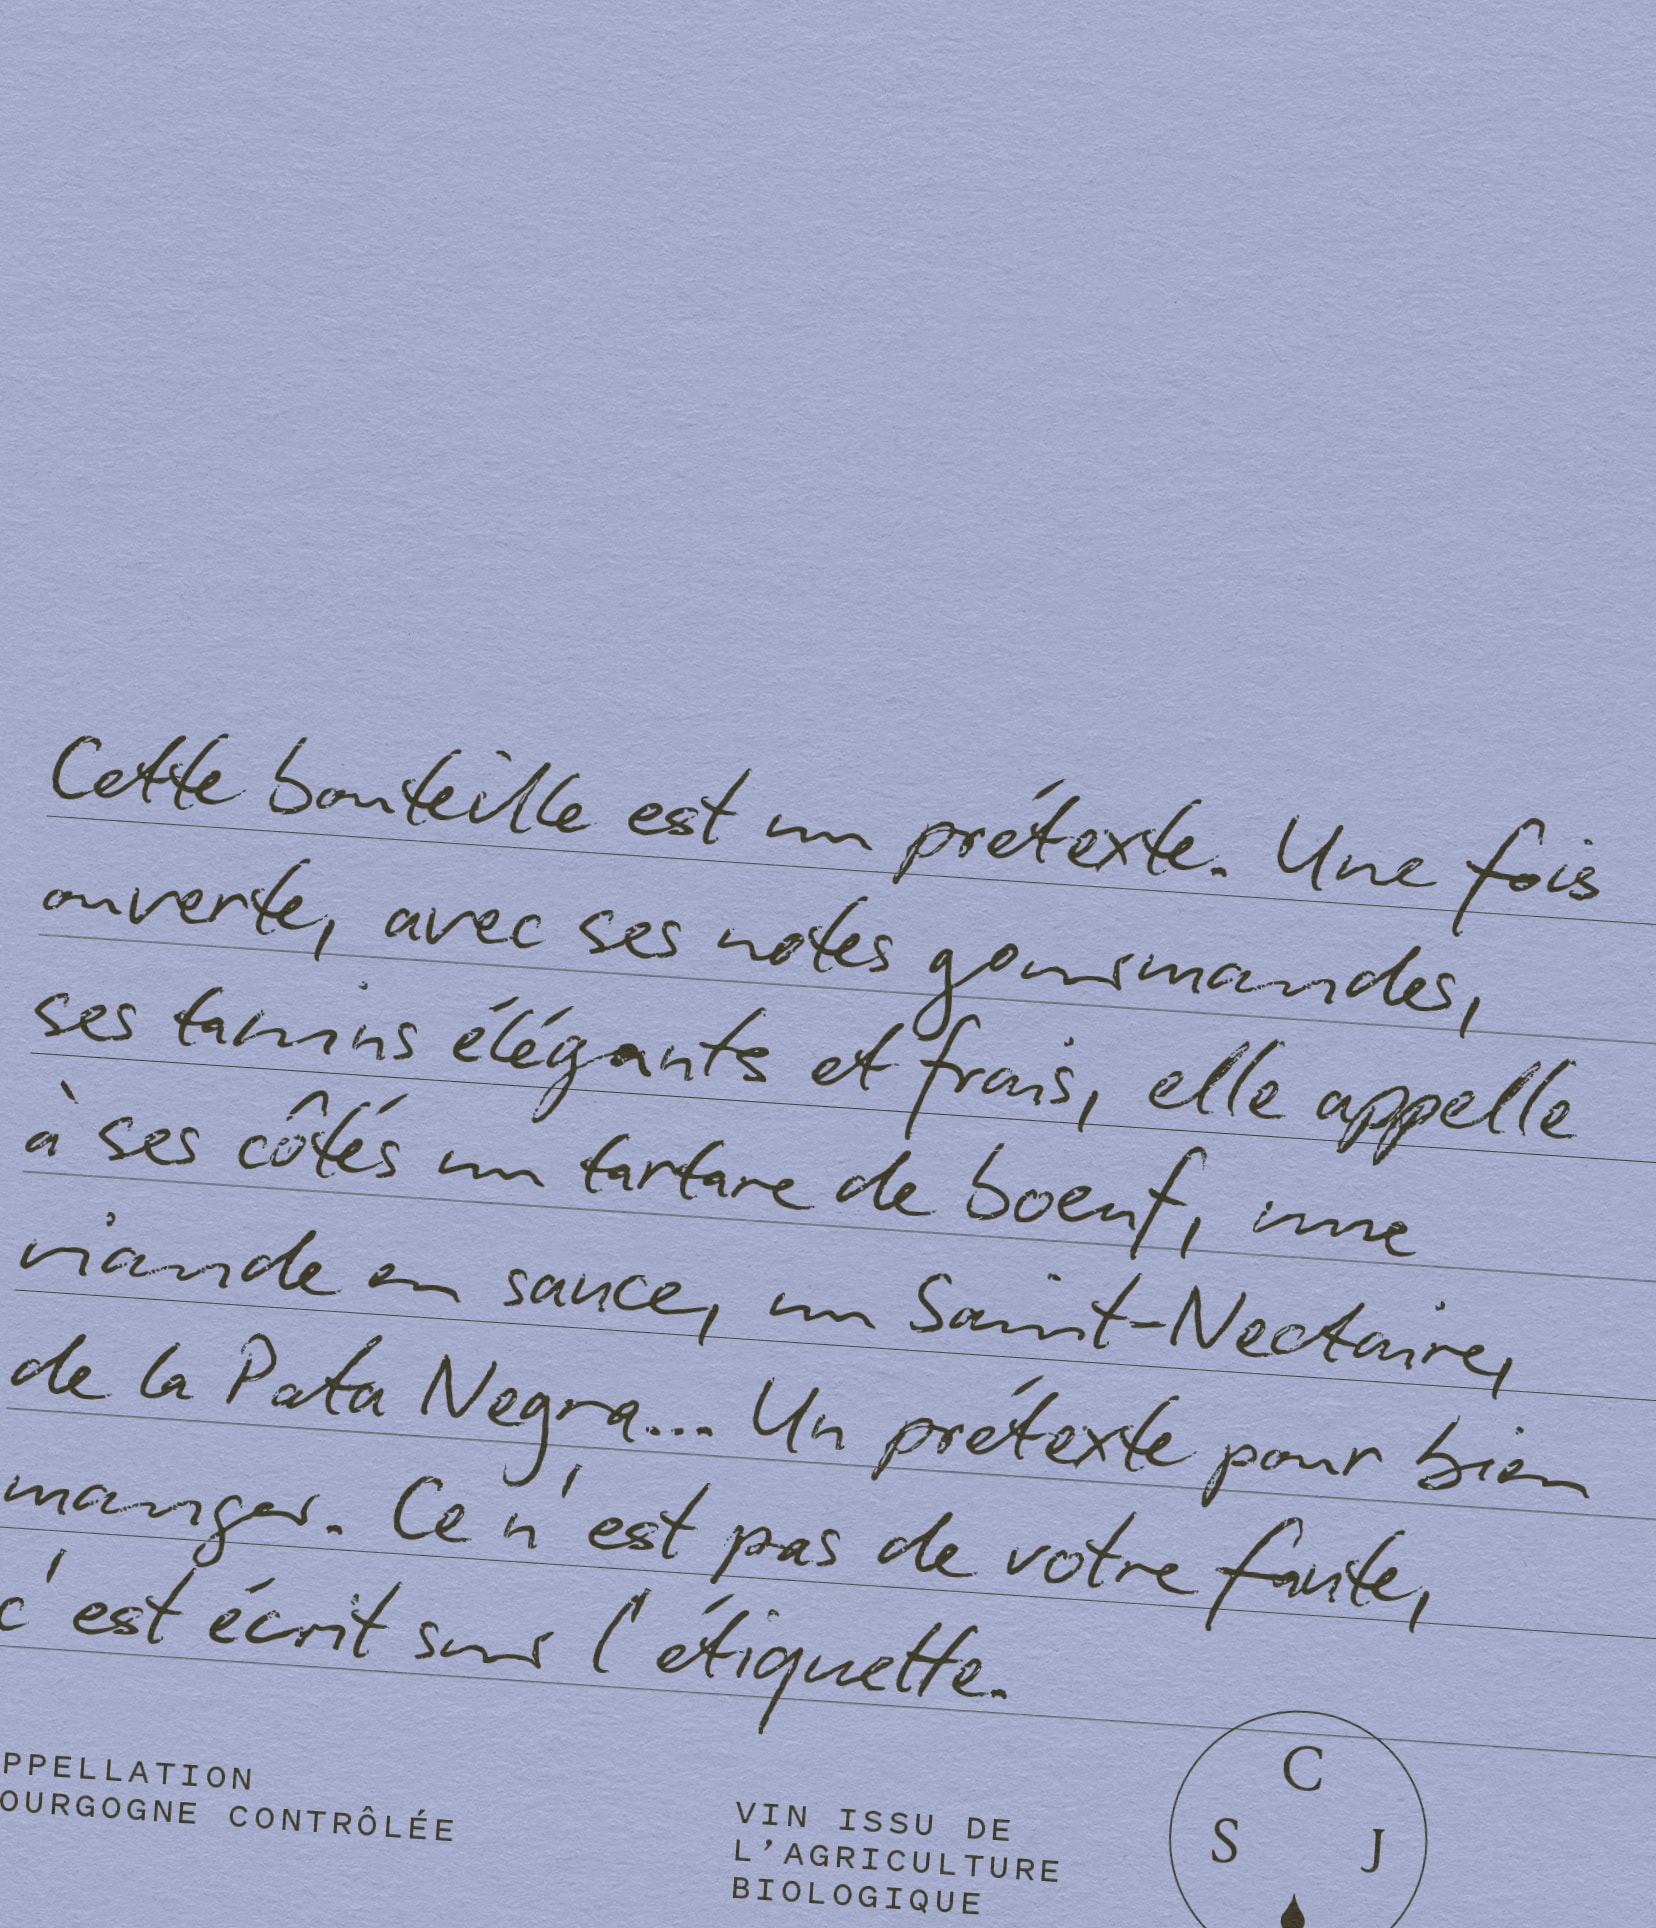 Cette bouteille est un prétexte. Une fois
ouverte, avec ses notes gourmandes,
ses tanins élégants et frais, elle appelle
à ses côtés un tartare de boeuf, une
viande en sauce, un Saint-Nectaire,
de la Pata Negra... Un prétexte pour bien
manger. Ce n'est pas de votre faute,
c'est écrit sur l'étiquette.
PPELLATION
OURGOGNE CONTRÔLÉE
VIN ISSU DE
L'AGRICULTURE
BIOLOGIQUE
C
S J